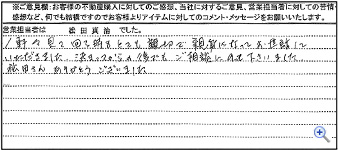 ※ご意見欄:お客様の不動産購入に対してのご感想、当社に対するご意見、営業担当者に対しての苦情
感想など、何でも結構ですのでお客様よりアイテムに対してのコメント・メッセージをお願いいたします。
営業担当者は 松田真治 でした。
見て回る時もとても親切で親身になってお世話して
いただきました 決まってからの後でもご相談にのって下さいました
松田さん ありがとうございました